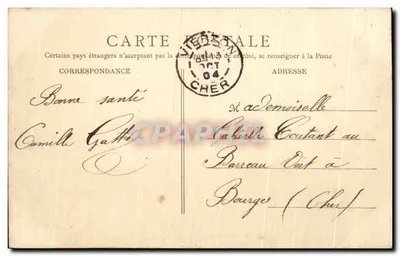 CARTE POSTALE
Certains pays étrangers n'acceptant pas la de ce côté, se renseigner à la Poste
CORRESPONDANCE
ADRESSE
VIERZON
OCT
04
CHER
Bonne santé
Camille
Mademoiselle
Coutant au
Barreau Vert à
Bourges (Cher)
CPARAMA